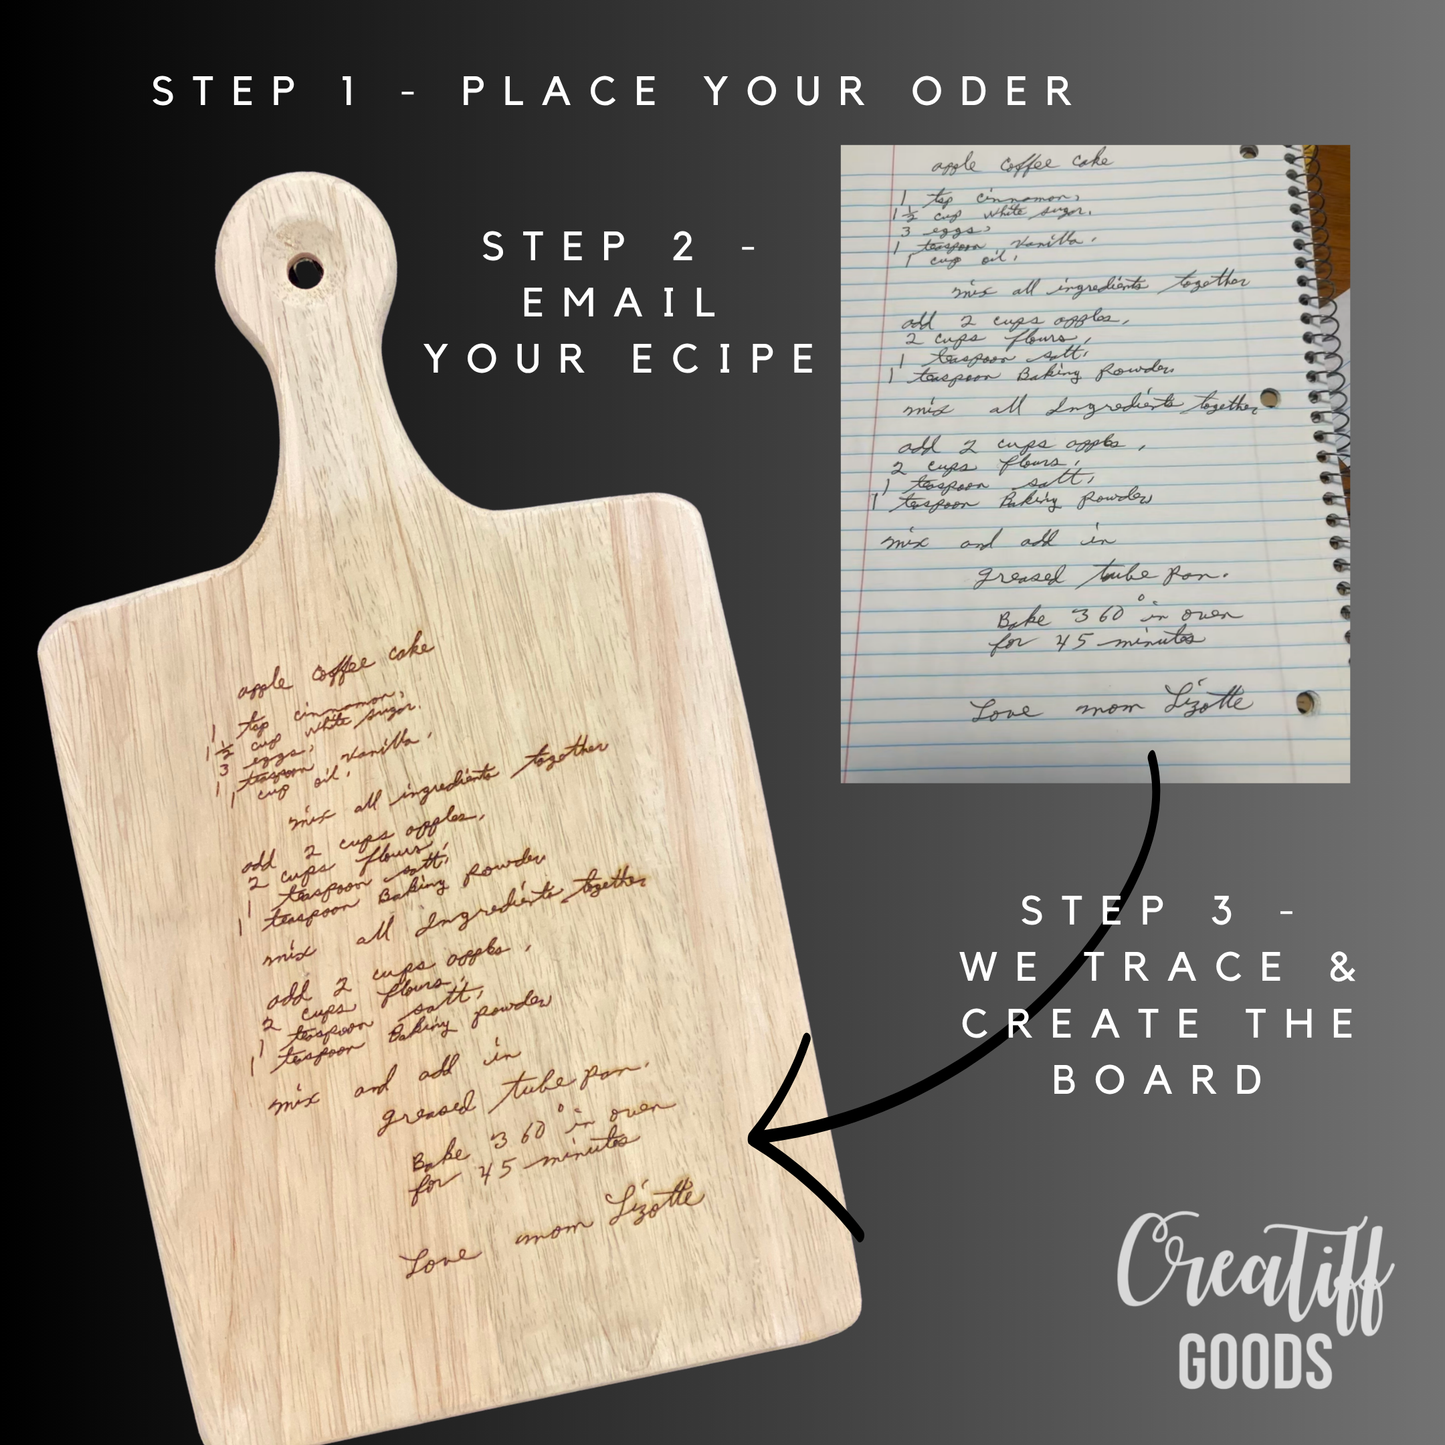 STEP 1 - PLACE YOUR ODER
STEP 2 -
EMAIL
YOUR ECIPE
apple coffee cake
1 tsp cinnamon,
1 1/2 cup white sugar,
3 eggs,
1 teaspoon vanilla.
1 cup oil,
mix all ingredients together
add 2 cups apples,
2 cups flours,
1 teaspoon salt,
1 teaspoon Baking Powder
mix all Ingredients together
add 2 cups apples,
2 cups flours,
1 teaspoon salt,
1 teaspoon Baking powder
mix and add in
greased tube pan.
Bake 360° in oven
for 45 minutes
Love mom Lizotte
apple coffee cake
1 tsp cinnamon,
1 1/2 cup white sugar.
3 eggs,
1 teaspoon vanilla.
1 cup oil,
mix all ingredients together
add 2 cups apples,
2 cups flours,
1 teaspoon salt,
1 teaspoon Baking Powder
mix all Ingredients together
add 2 cups apples,
2 cups flours,
1 teaspoon salt,
1 teaspoon Baking powder
mix and add in
greased tube pan.
Bake 360° in oven
for 45 minutes
Love mom Lizotte
STEP 3 -
WE TRACE &
CREATE THE
BOARD
Creatiff
GOODS